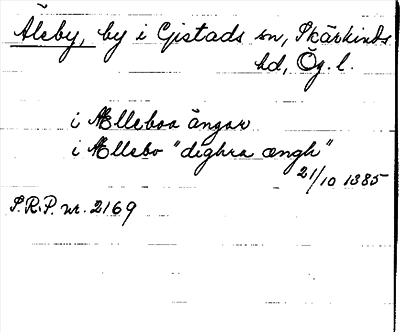 Äleby, by i Gistads sn, Skärkinds
hd, Ög. l.
i Ælleboa ängar
i Ællebo "dighra ængh"
21/10 1385
S.R.P. nr. 2169